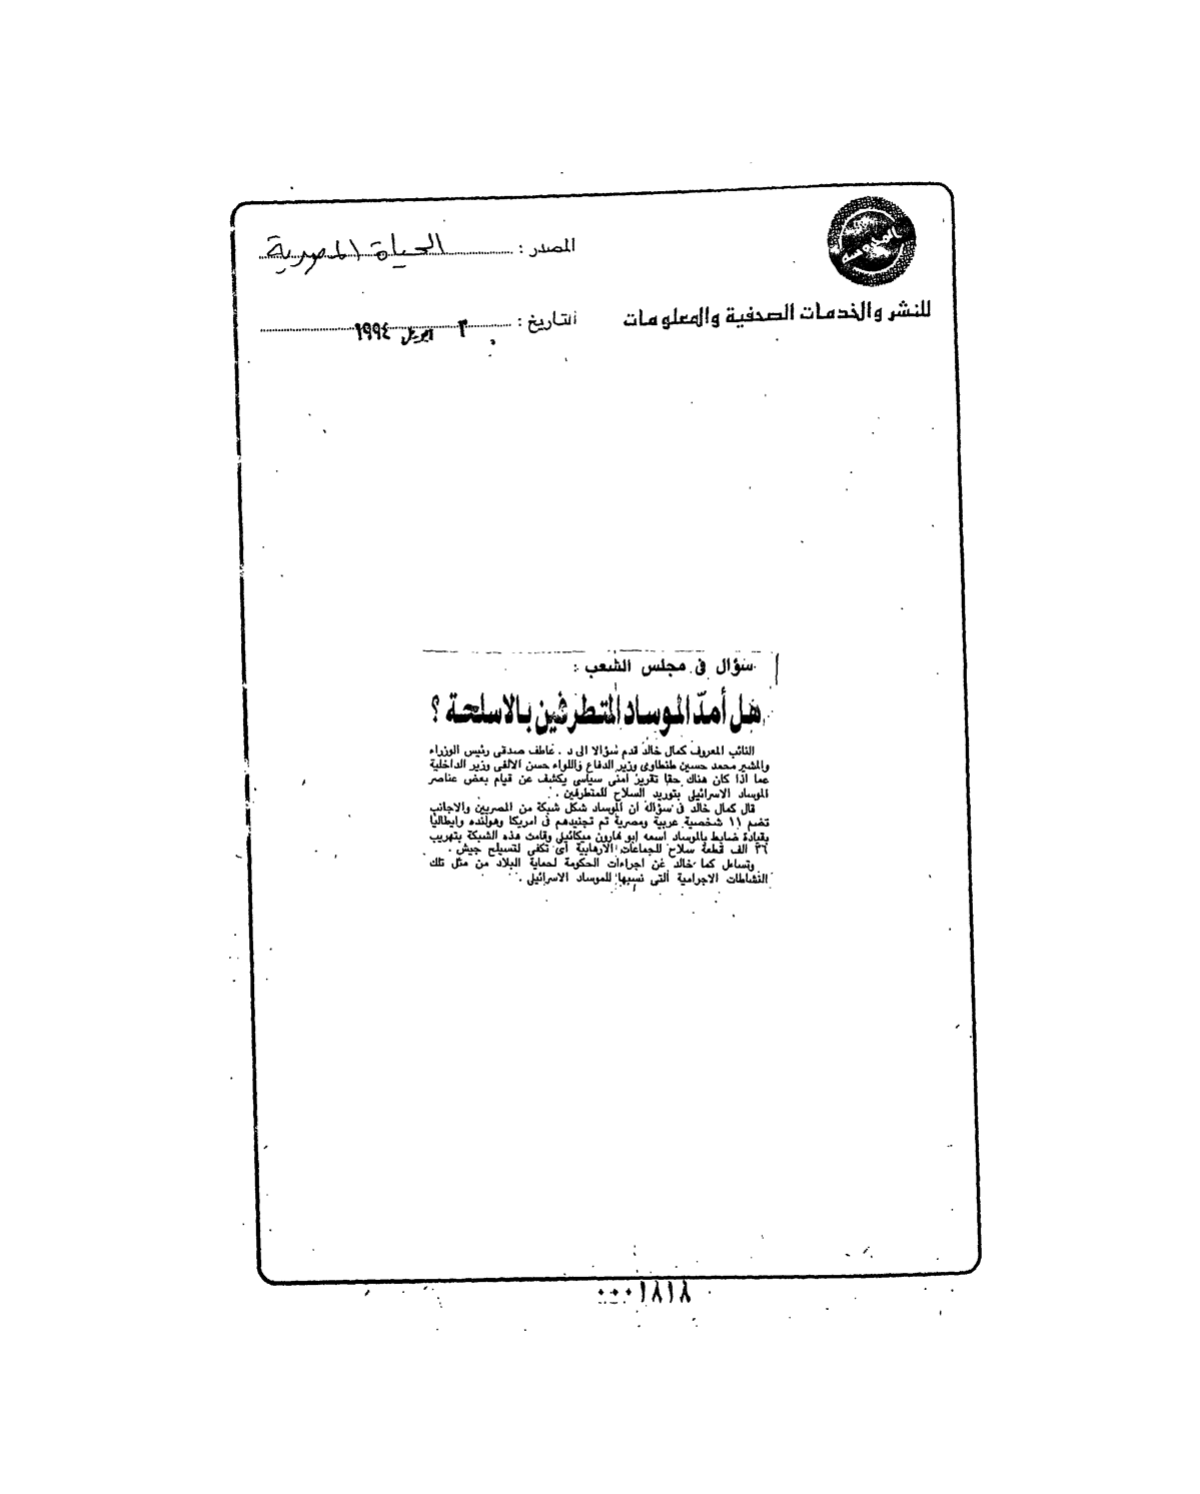 المصدر : الحياة المصرية
للنشر والخدمات الصحفية والمعلومات
التاريخ : ٣ ابريل ١٩٩٤
سؤال فى مجلس الشعب :
هل أمدّ الموساد المتطرفين بالاسلحة ؟
النائب المعروف كمال خالد قدم سؤالا الى د . عاطف صدقى رئيس الوزراء
والمشير محمد حسين طنطاوى وزير الدفاع واللواء حسن الالفى وزير الداخلية
عما اذا كان هناك حقا تقرير امنى سياسى يكشف عن قيام بعض عناصر
الموساد الاسرائيلى بتوريد السلاح للمتطرفين .
قال كمال خالد فى سؤاله ان الموساد شكل شبكة من المصريين والاجانب
تضم ١١ شخصية عربية ومصرية تم تجنيدهم فى امريكا وهولنده وايطاليا
بقيادة ضابط بالموساد اسمه ابو هارون ميكائيلى وقامت هذه الشبكة بتهريب
٢٦ الف قطعة سلاح للجماعات الارهابية اى تكفى لتسيلح جيش .
وتساءل كما خالد عن اجراءات الحكومة لحماية البلاد من مثل تلك
النشاطات الاجرامية التى نسبها للموساد الاسرائيلى .
٠٠٠١٨١٨